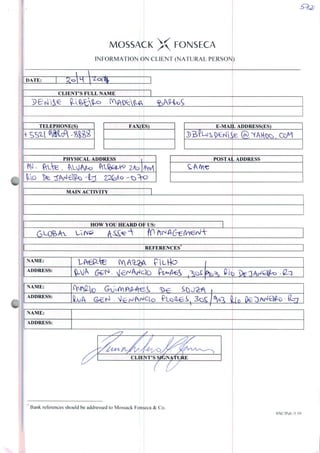 572
MOSSACK FONSECA
INFORMATION ON CLIENT (NATURAL PERSON)
DATE: 20/4/2014
CLIENT'S FULL NAME
DENISE RIBEIRO MADEIRA BARROS
TELEPHONE(S) FAX(ES) E-MAIL ADDRESS(ES)
+5521 -8888 DBPLUSDENISE@YAHOO.COM
PHYSICAL ADDRESS POSTAL ADDRESS
AV. ALTE. ALVARO ALBERTO 210 SAME
RIO DE JANEIRO - RJ 22610-070
MAIN ACTIVITY
HOW YOU HEARD OF US:
GLOBAL LINE ASSET MANAGEMENT
REFERENCES*
NAME: LAERTE MAZZA FILHO
ADDRESS: RUA GEN VENANCIO FLORES, 305/903 RIO DE JANEIRO - RJ
NAME: MARIO GUIMARAES DE SOUZA
ADDRESS: RUA GEN VENANCIO FLORES, 305/903 RIO DE JANEIRO RJ
NAME:
ADDRESS:
CLIENT'S SIGNATURE
* Bank references should be addressed to Mossack Fonseca & Co.